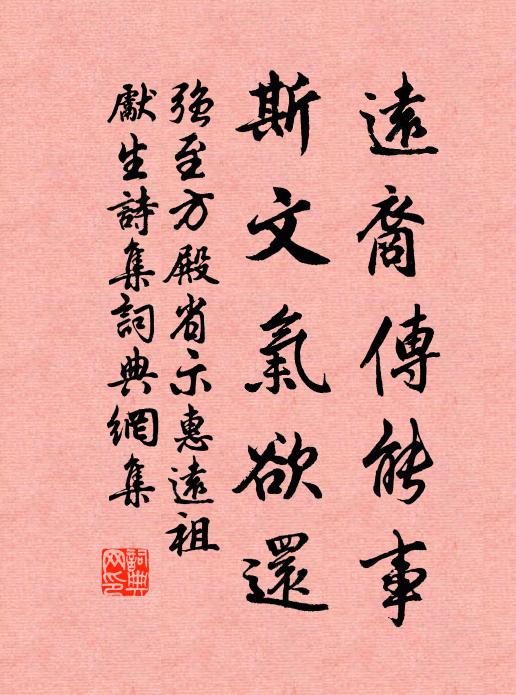 遠裔傳能事
斯文氣欲還
強至方殿省示惠遠祖
獻生詩集詞典網集
詞典網印